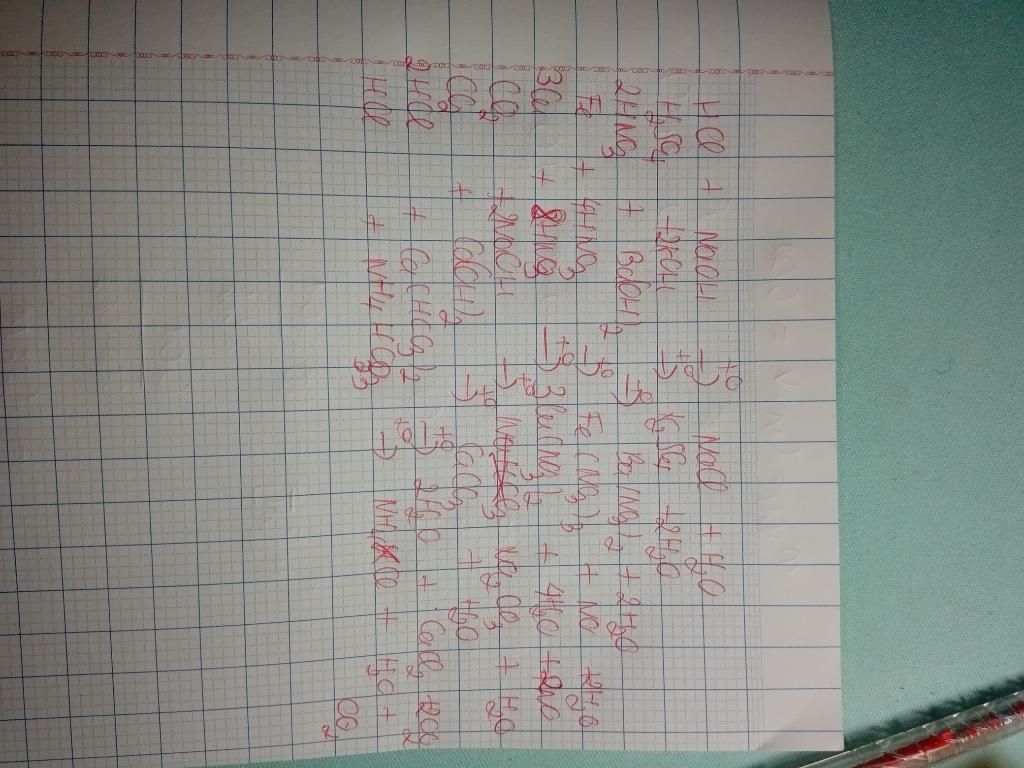 HCl + NaOH →t° NaCl + H2O
H2SO4 + 2KOH →t° K2SO4 + 2H2O
2HNO3 + Ba(OH)2 →t° Ba(NO3)2 + 2H2O
Fe + 4HNO3 →t° Fe(NO3)3 + NO + 2H2O
3Cu + 8HNO3 →t° 3Cu(NO3)2 + 4H2O + 2NO
CO2 + 2NaOH →t° Na2CO3 + H2O
CO2 + Ca(OH)2 →t° CaCO3 + H2O
2HCl + Ca(HCO3)2 →t° 2H2O + CaCl2 + 2CO2
HCl + NH4HCO3 →t° NH4Cl + H2O + CO2